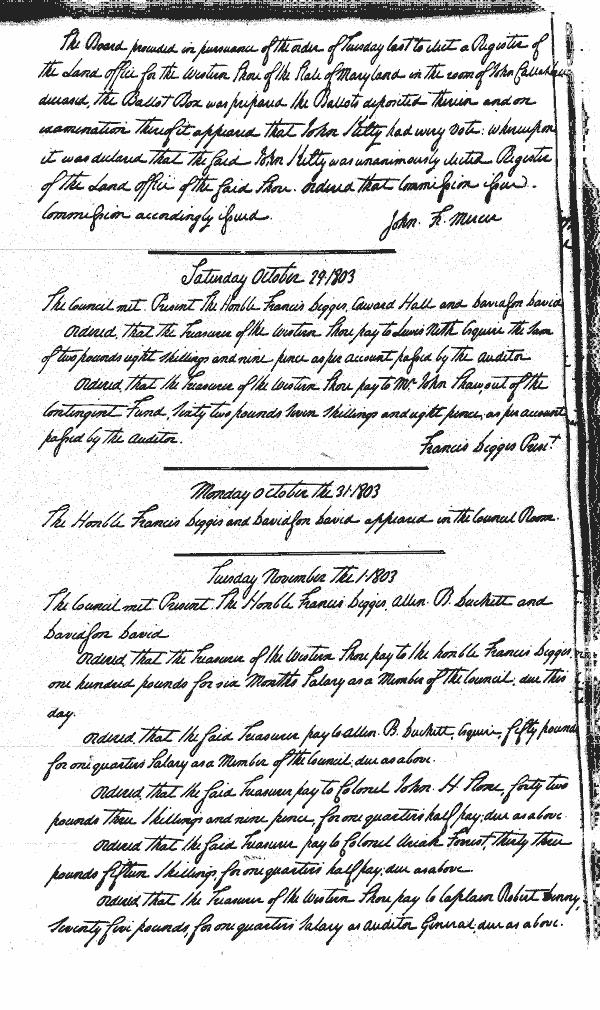 The Board proceeded in pursuance of the order of Tuesday last to elect a Register of
the Land office for the Western Shore of the State of Maryland in the room of John Callahan
deceased, the Ballot Box was prepared the Ballots deposited therein and on
examination thereof it appeared that John Kilty had every vote: whereupon
it was declared that the said John Kilty was unanimously elected Register
of the Land office of the said Shore. ordered that Commission issue.
Commission accordingly issued.
John. F. Mercer
Saturday October 29.1803
The Council met Present The Honble Francis Digges, Edward Hall and Davidson David
Ordered, that the Treasurer of the Western Shore pay to Lewis Neth Esquire the sum
of two pounds eight shillings and nine pence as per account passed by the auditor
Ordered, that the Treasurer of the Western Shore pay to Mr. John Shaw out of the
Contingent Fund, Sixty two pounds Seven shillings and eight pence, as per account
passed by the Auditor.
Francis Digges Presit
Monday October the 31.1803
The Honble Francis Digges and Davidson David appeared in the Council Room.
Tuesday November the 1.1803
The Council met Present. The Honble Francis Digges, Allen. B. Duckett and
Davidson David
Ordered, that the Treasurer of the Western Shore pay to the honble Francis Digges,
one hundred pounds for six Months Salary as a Member of the Council, due this
day.
Ordered, that the said Treasurer pay to Allen. B. Duckett, Esquire, fifty pounds
for one quarters Salary as a Member of the Council, due as above.
Ordered, that the said Treasurer pay to Colonel John. H. Stone, forty two
pounds three shillings and nine pence, for one quarters half pay, due as above.
Ordered that the said Treasurer pay to Colonel Uriah Forrest, thirty three
pounds fifteen shillings, for one quarters half pay, due as above
Ordered, that the Treasurer of the Western Shore pay to Captain Robert Denny,
Seventy five pounds, for one quarters Salary as Auditor General, due as above.